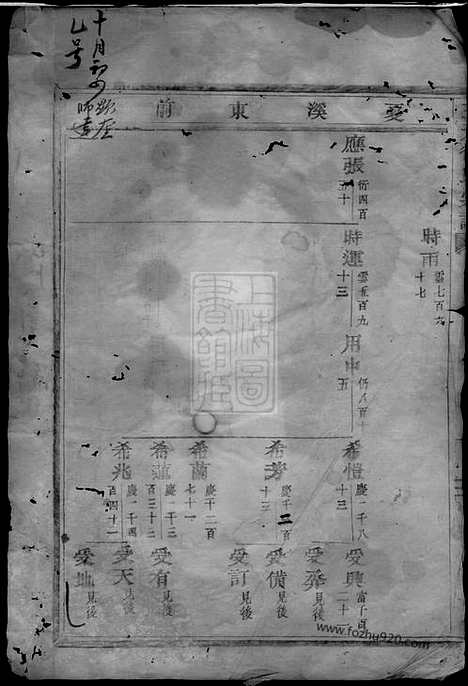 十月初
乙号
前東溪
時雨 雲七百六十七
應張 衍四百五十
時運 雲五百九十三
用中 仍八百十五
希愷 慶一千八十三
希芳 慶千二百十三
希蘭 慶千二百七十一
希蓮 慶一千三百三十二
希兆 慶一千四百四十一
愛興
愛彝 見後
愛備 見後
愛訂 見後
愛有 見後
愛天 見後
愛地 見後
上海圖書館藏
www.fozhu920.com